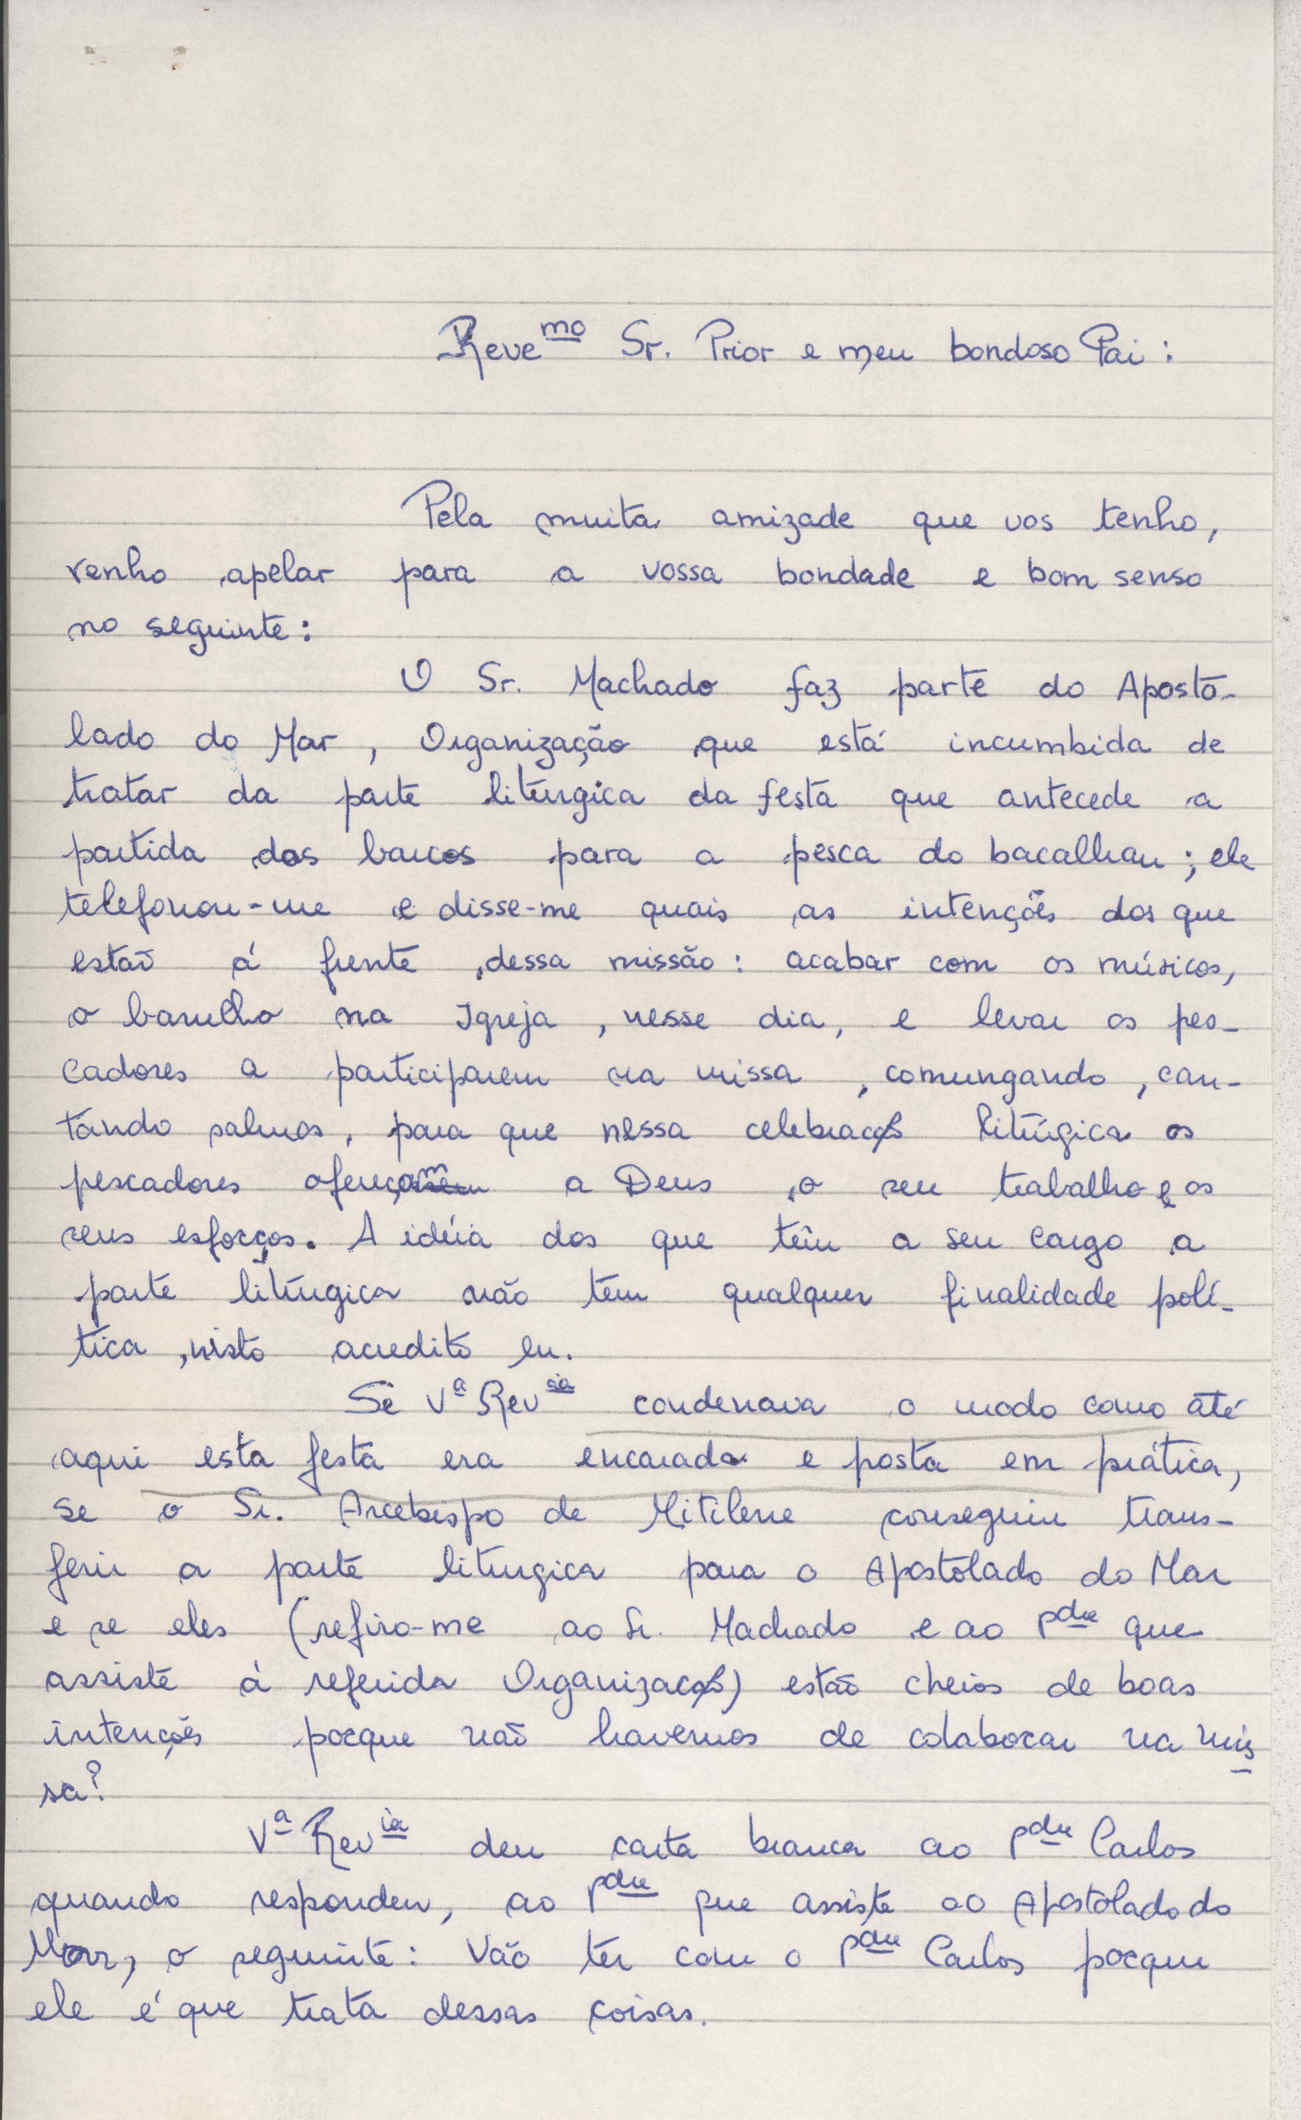 Reve mo Sr. Prior e meu bondoso Pai :
Pela muita amizade que vos tenho,
venho apelar para a vossa bondade e bom senso
no seguinte :
O Sr. Machado faz parte do Aposto-
lado do Mar , Organização que está incumbida de
tratar da parte litúrgica da festa que antecede a
partida dos barcos para a pesca do bacalhau ; ele
telefonou-me e disse-me quais as intenções dos que
estão á frente dessa missão : acabar com os músicos,
o barulho na Igreja , nesse dia, e levar os pes-
cadores a participarem na missa , comungando , can-
tando salmos, para que nessa celebração litúrgica os
pescadores ofereçam a Deus o seu trabalho e os
seus esforços. A idéia dos que têm a seu cargo a
parte litúrgica não têm qualquer finalidade polí-
tica , nisto acredito eu.
Se Vª Rev sia condenava o modo como até
aqui esta festa era encarada e posta em prática,
se o Sr. Arcebispo de Mitilene conseguiu trans-
ferir a parte liturgica para o Apostolado do Mar
e se eles (refiro-me ao Sr. Machado e ao P dre que
assiste à referida Organização) estão cheios de boas
intenções porque não havemos de colaborar na mis
sa?
Vª Rev ia deu carta branca ao P dre Carlos
quando respondeu, ao P dre que assiste ao Apostolado do
Mar, o seguinte : Vão ter com o P dre Carlos porque
ele é que trata dessas coisas.